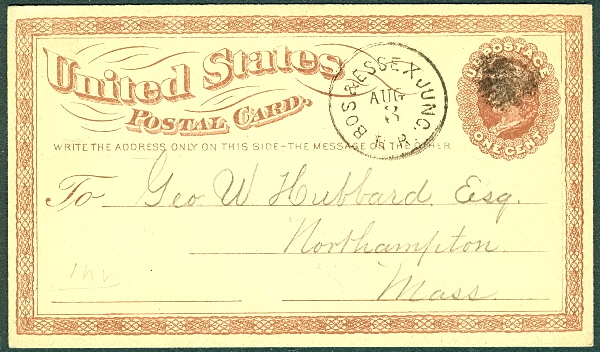 United States
POSTAL CARD.
U.S. POSTAGE
ONE CENT
BOS. & ESSEX JUNC.
AUG
3
R.P.
WRITE THE ADDRESS ONLY ON THIS SIDE—THE MESSAGE ON THE OTHER
To Geo W Hubbard. Esq.
Northampton
Mass.